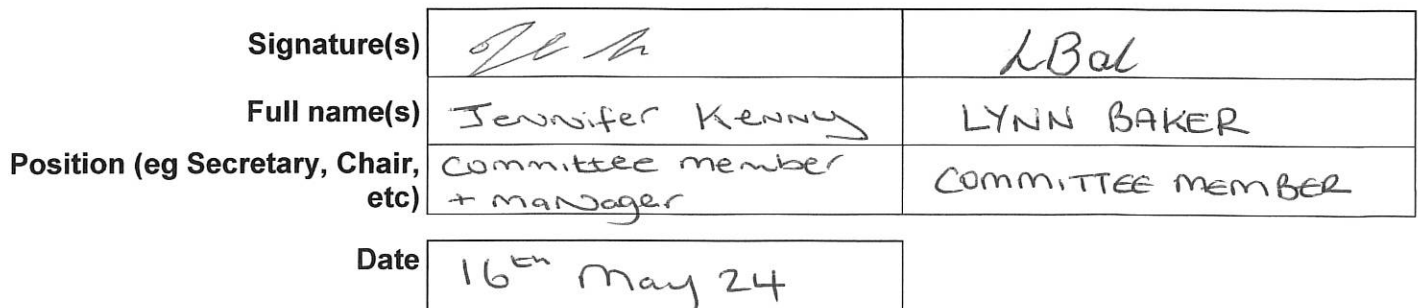 Signature(s) LBal
Full name(s) Jennifer Kenny LYNN BAKER
Position (eg Secretary, Chair, etc) committee member + manager COMMITTEE MEMBER
Date 16th May 24